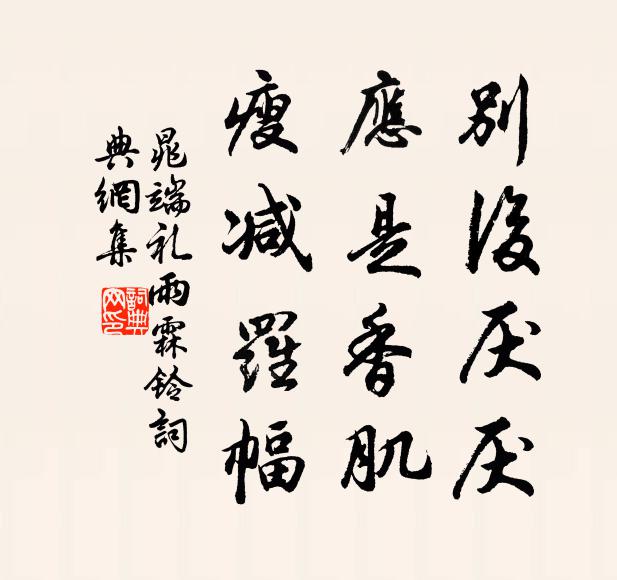 別後厌厌
應是香肌
瘦减羅幅
晁端礼雨霖鈴詞
典網集
詞典
网印